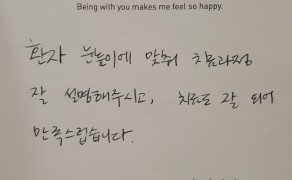 Being with you makes me feel so happy.
환자 눈높이에 맞춰 치료과정
잘 설명해주시고, 치료도 잘 되어
만족스럽습니다.